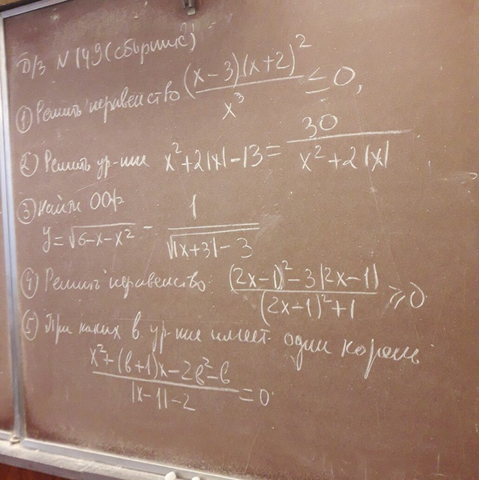 Д/З №149 (сборник)
① Решить неравенство (x-3)(x+2)²/x³ ≤ 0,
② Решить ур-ние x²+2|x|-13 = 30/(x²+2|x|)
③ Найти ООф
y=√(6-x-x²) - 1/√(|x+3|-3)
④ Решить неравенство ((2x-1)²-3|2x-1|)/((2x-1)²+1) ≥ 0
⑤ При каких в ур-ние имеет один корень
(x²+(в+1)x-2в²-в)/(|x-1|-2) = 0